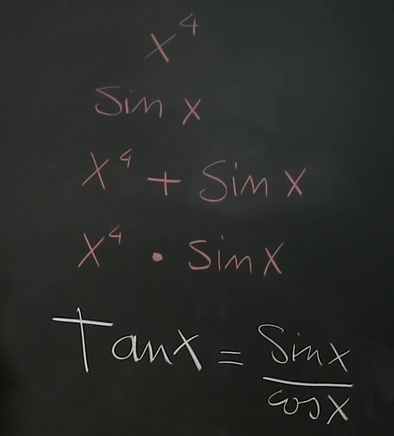 x⁴
Sin x
x⁴ + Sin x
x⁴ • Sin x
Tan x = Sin x / cos x